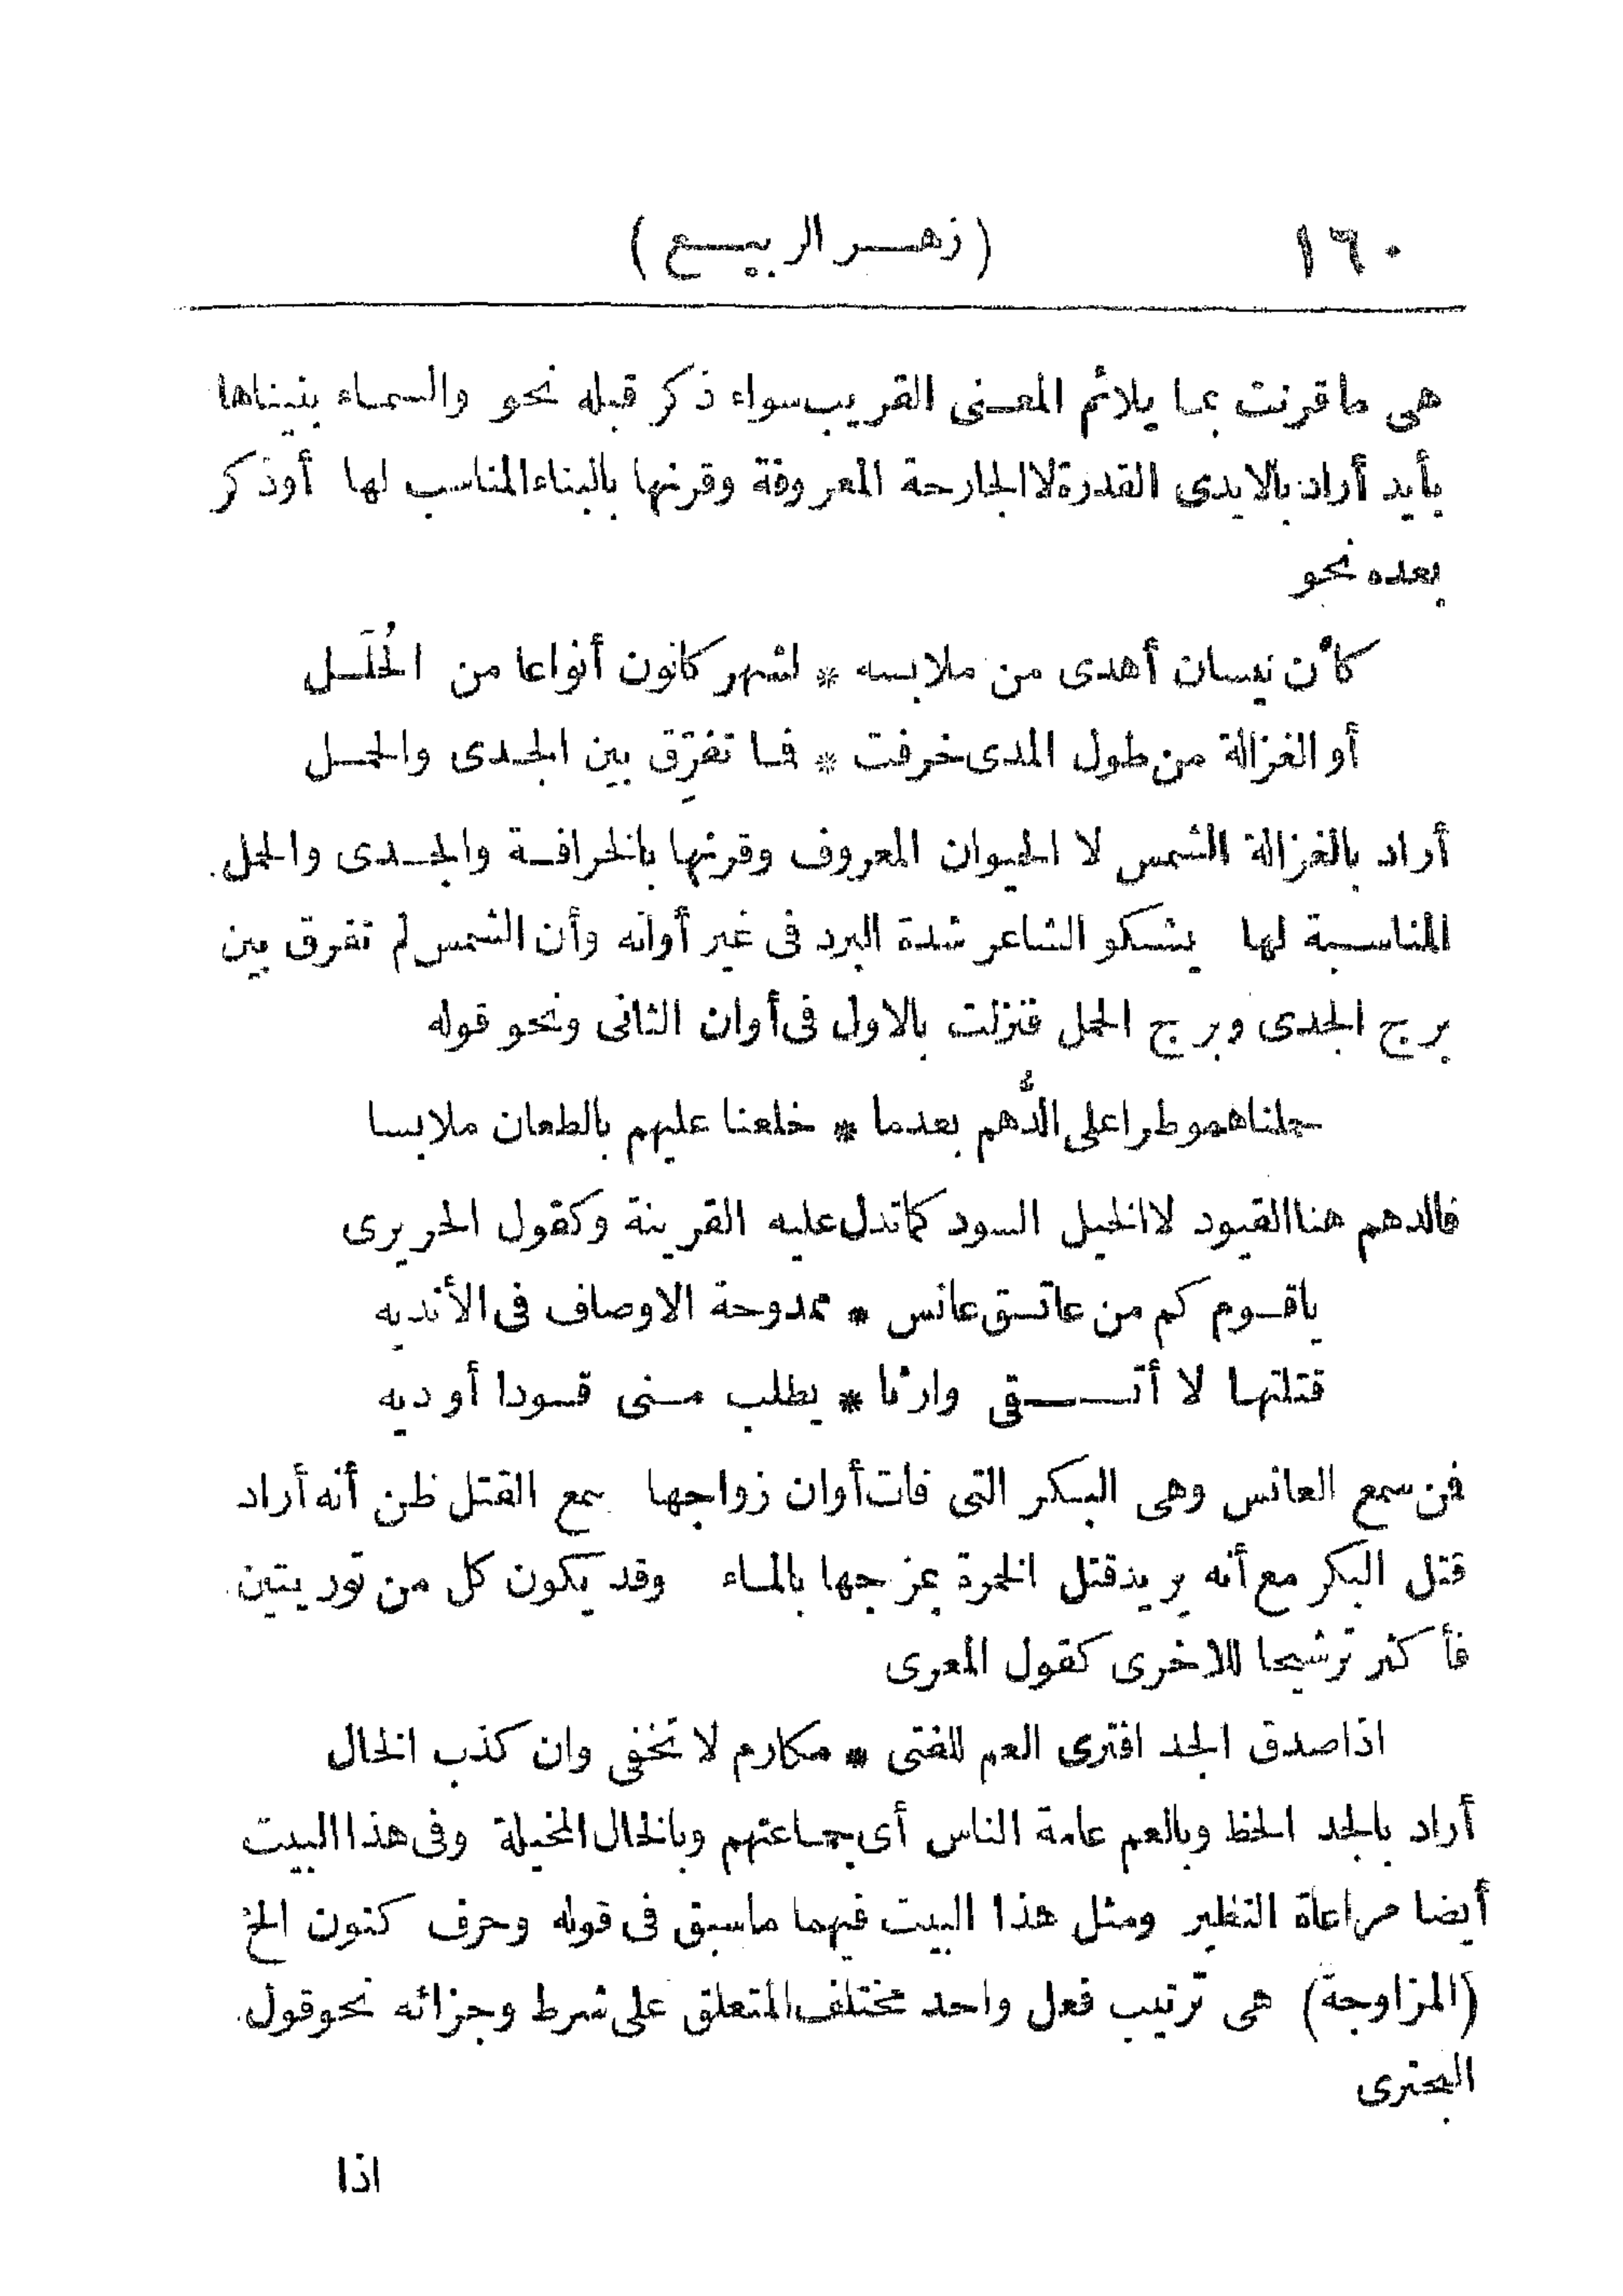 ١٦٠ (زهر الربيع)
هى ما قرنت بما يلائم المعنى القريب سواء ذكر قبله نحو والسماء بنيناها
بأيد أراد بالايدى القدرة لا الجارحة المعروفة وقرنها بالبناء المناسب لها أو ذكر
بعده نحو
كأن نيسان أهدى من ملابسه * لشهر كانون أنواعا من الحُلَل
أو الغزالة من طول المدى خرفت * فما تفرّق بين الجدى والحمل
أراد بالغزالة الشمس لا الحيوان المعروف وقرنها بالخرافة والجدى والحمل
المناسبة لها يشكو الشاعر شدة البرد فى غير أوانه وأن الشمس لم تفرق بين
برج الجدى وبرج الحمل فنزلت بالاول فى أوان الثانى ونحو قوله
حملناهمو طرا على الدُّهم بعدما * خلعنا عليهم بالطعان ملابسا
فالدهم هنا القيود لا الخيل السود كما تدل عليه القرينة وكقول الحريرى
ياقوم كم من عاتق عانس * ممدوحة الاوصاف فى الأنديه
قتلتها لا أتقى وارثا * يطلب منى قودا أو ديه
فمن سمع العانس وهى البكر التى فات أوان زواجها سمع القتل ظن أنه أراد
قتل البكر مع أنه يريد قتل الخمرة بمزجها بالماء وقد يكون كل من توريتين
فأكثر ترشيحا للاخرى كقول المعرى
اذا صدق الجد افترى العم للفتى * مكارم لا تخفى وان كذب الخال
أراد بالجد الحظ وبالعم عامة الناس أى جماعتهم وبالخال المخيلة وفى هذا البيت
أيضا مراعاة النظير ومثل هذا البيت فيهما ما سبق فى قوله وحرف كنون الخ
(المزاوجة) هى ترتيب فعل واحد مختلف المتعلق على شرط وجزائه نحو قول
البحترى
اذا